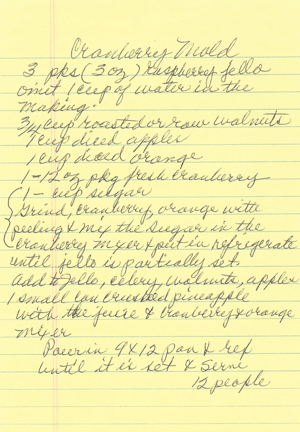 Cranberry Mold
3 pks (3 oz) Raspberry jello
omit 1 cup of water in the
making.
3/4 cup roasted or raw walnuts
1 cup diced apples
1 cup diced orange
1-12 oz pkg fresh cranberry
1- cup sugar
Grind, cranberry, orange with
peeling & mix the sugar in the
cranberry mixer & put in refrigerate
until jello is partially set.
Add to jello, celery, walnuts, apples
1 small can crushed pineapple
with the juice & cranberry & orange
mixer
Pour in 9x12 pan & ref
until it is set & serve
12 people